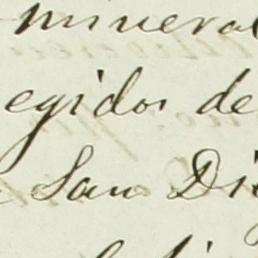 mineral
egidos de
San Di